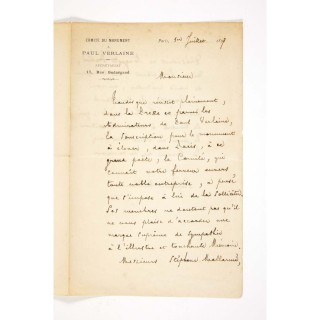 COMITÉ DU MONUMENT
A
PAUL VERLAINE
SECRÉTARIAT
Paris, Juillet 1897
Monsieur
Tandis que réussit pleinement,
dans la Presse et parmi les
Admirateurs de Paul Verlaine,
la souscription pour le monument
à élever, dans Paris, à ce
grand poëte, le Comité, qui
connaît votre ferveur envers
toute noble entreprise, a pensé
que s'impose à lui de la solliciter.
Ses membres ne doutent pas qu'il
ne vous plaise d'accorder une
marque suprême de sympathie
à l'illustre et touchante Mémoire.
Messieurs Stéphane Mallarmé,